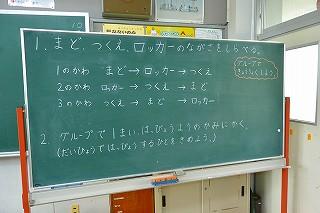 1. まど、つくえ、ロッカーのながさをしらべる。
グループで
きょうりょくしよう。
1のかわ まど→ロッカー→つくえ
2のかわ ロッカー→つくえ→まど
3のかわ つくえ→まど→ロッカー
2. グループで1まい、はっぴょうようのかみにかく。
(だいひょうではっぴょうするひとをきめよう。)